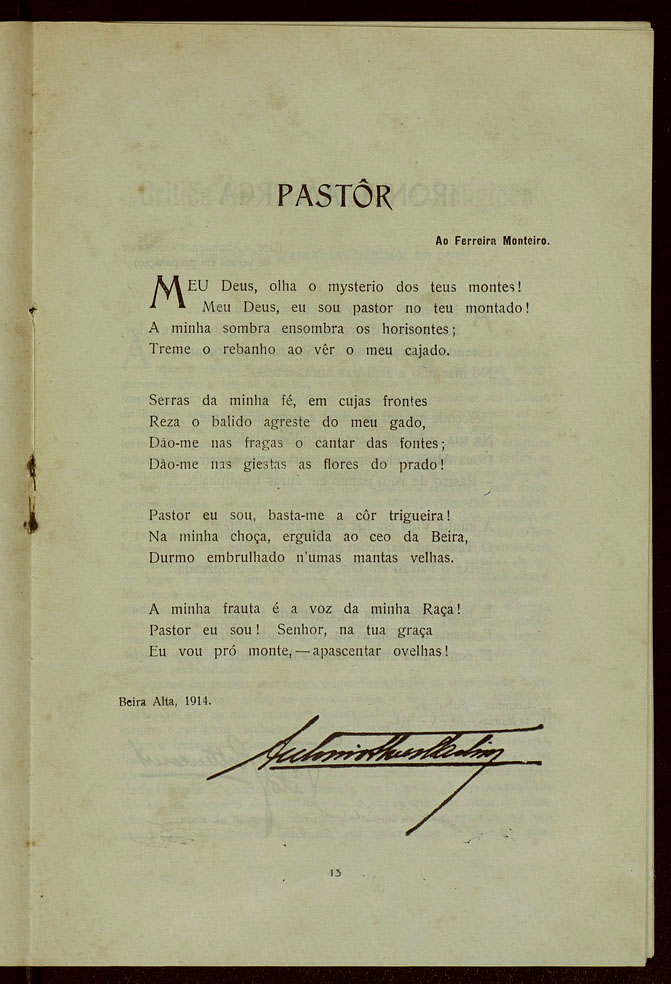 PASTÔR
Ao Ferreira Monteiro.
MEU Deus, olha o mysterio dos teus montes!
Meu Deus, eu sou pastor no teu montado!
A minha sombra ensombra os horisontes;
Treme o rebanho ao vêr o meu cajado.
Serras da minha fé, em cujas frontes
Reza o balido agreste do meu gado,
Dão-me nas fragas o cantar das fontes;
Dão-me nas giestas as flores do prado!
Pastor eu sou, basta-me a côr trigueira!
Na minha choça, erguida ao ceo da Beira,
Durmo embrulhado n'umas mantas velhas.
A minha frauta é a voz da minha Raça!
Pastor eu sou! Senhor, na tua graça
Eu vou pró monte,—apascentar ovelhas!
Beira Alta, 1914.
Antonio
13